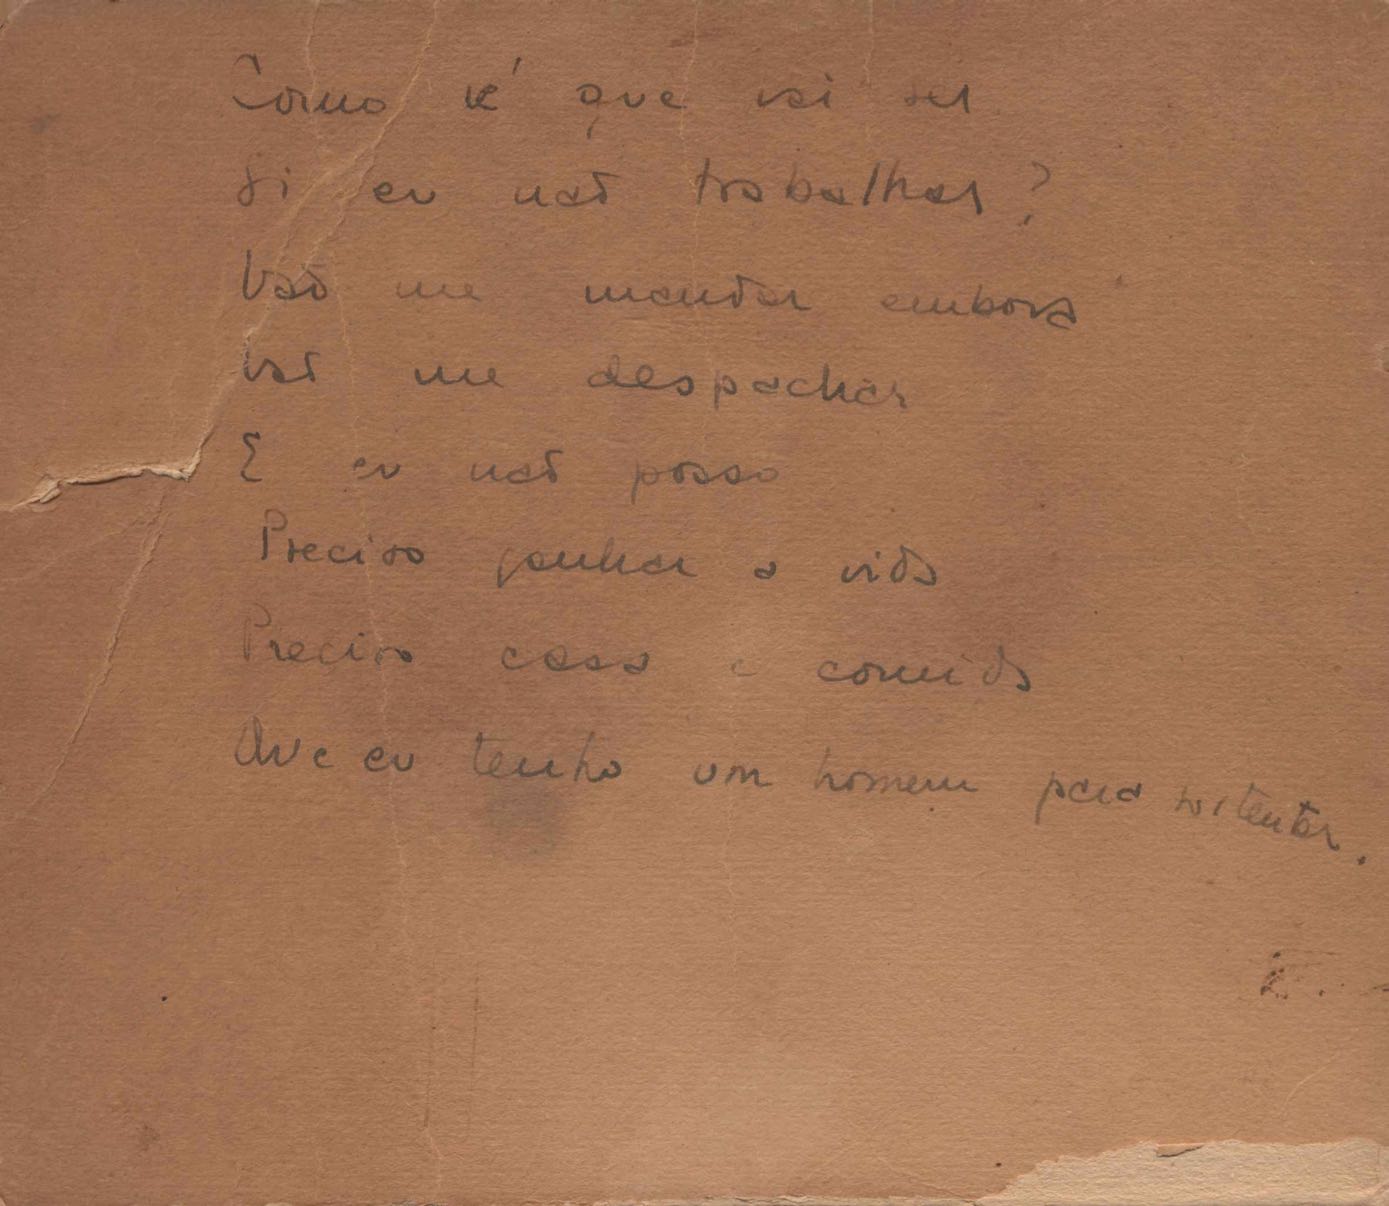 Como é que vai ser
Si eu não trabalhar?
Vão me mandar embora
Vão me despachar
E eu não posso
Preciso ganhar a vida
Preciso casa e comida
Que eu tenho um homem para sustentar.